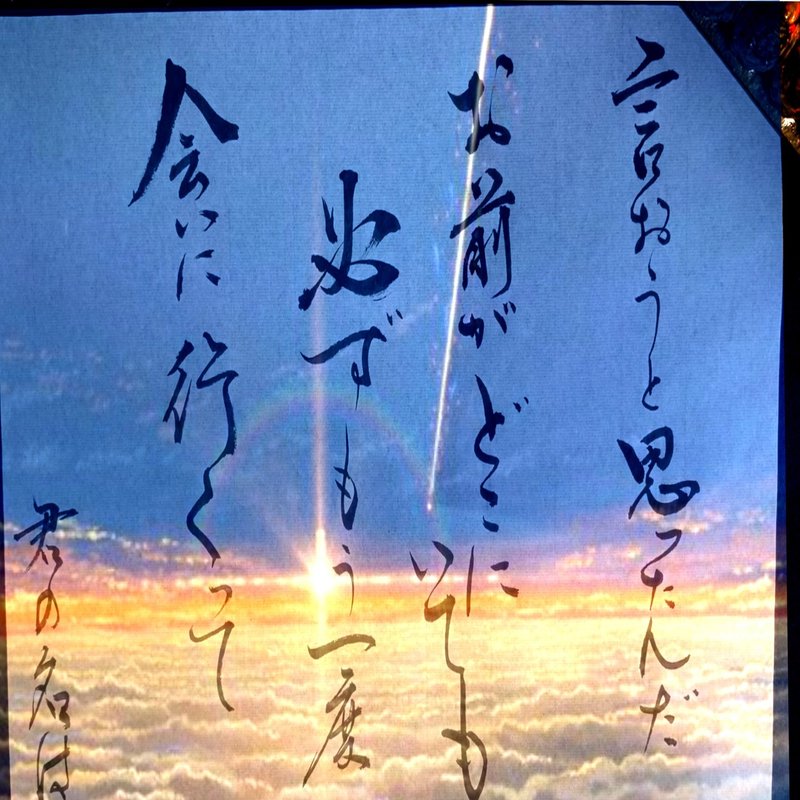 言おうと思ったんだ
お前がどこにいても
必ずもう一度
会いに行くって
君の名は